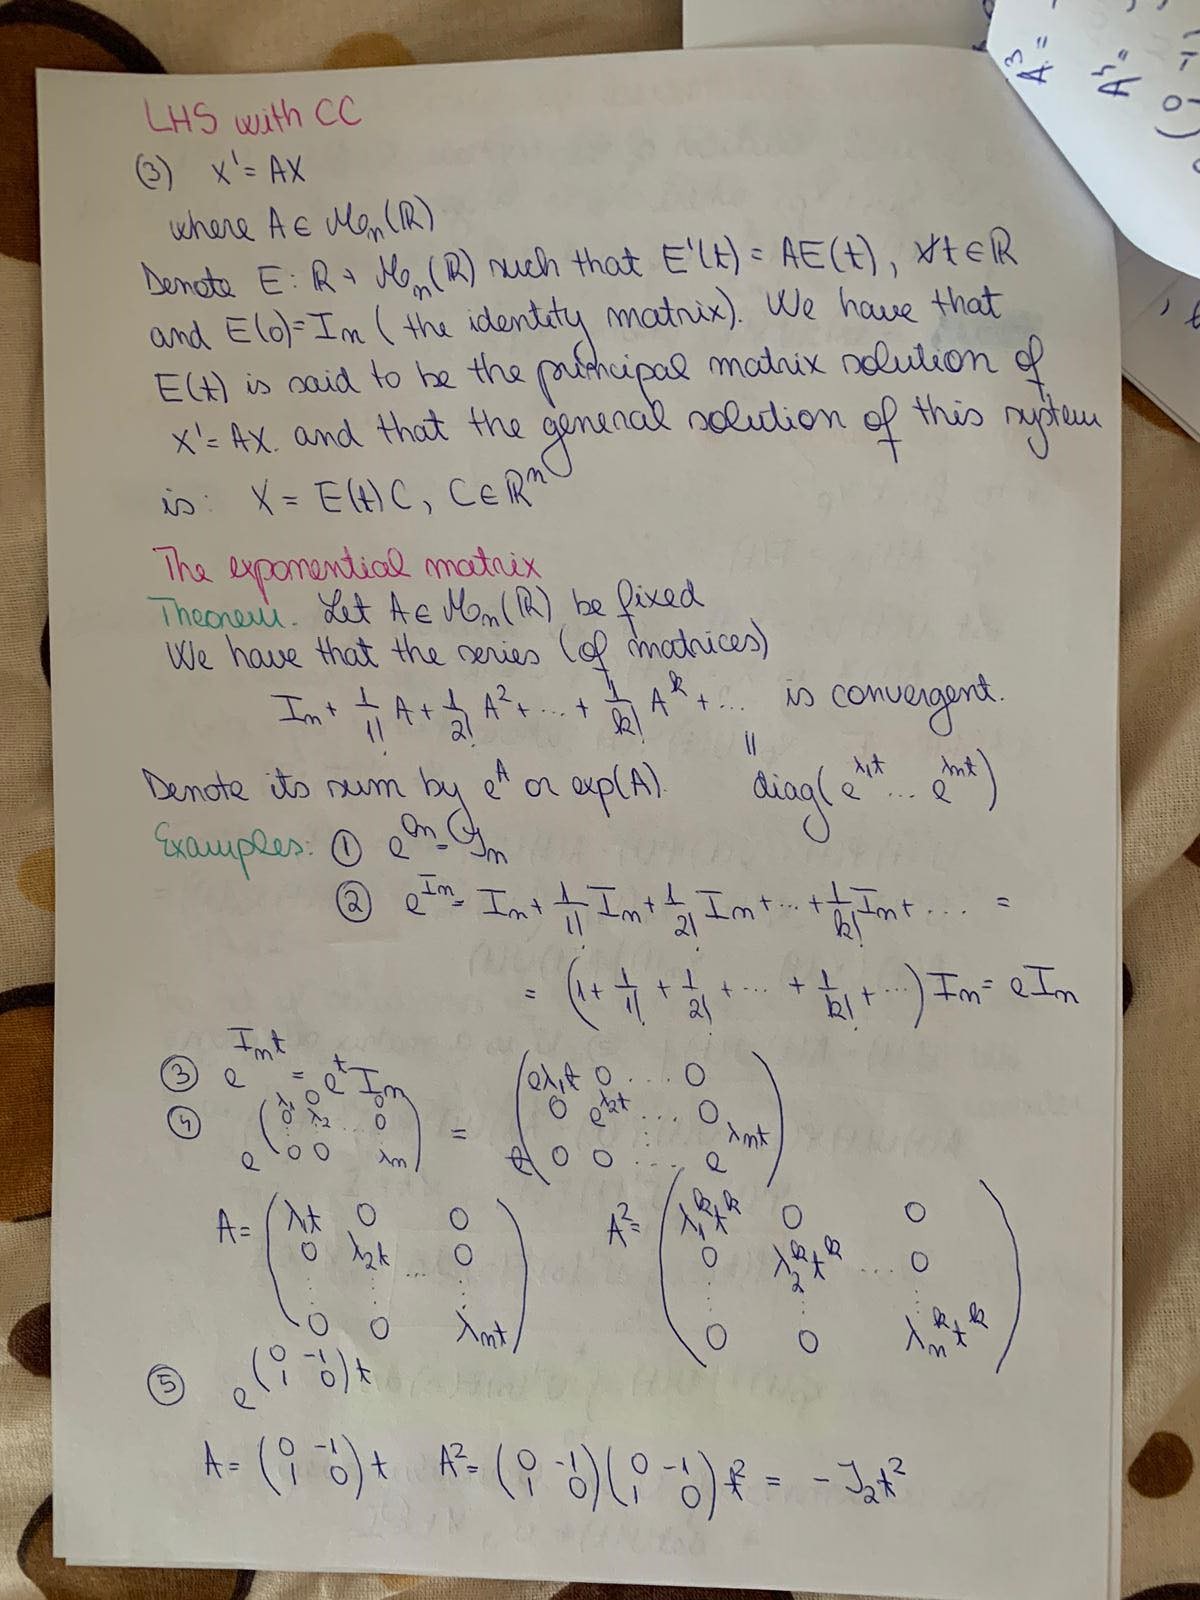 LHS with CC
(3) X' = AX
where A ∈ Mn(R)
Denote E: R → Mn(R) such that E'(t) = AE(t), ∀t ∈ R
and E(0) = In (the identity matrix). We have that
E(t) is said to be the principal matrix solution of
X' = AX. and that the general solution of this system
is: X = E(t)C, C ∈ R^n
The exponential matrix
Theorem. Let A ∈ Mn(R) be fixed
We have that the series (of matrices)
In + 1/1! A + 1/2! A^2 + ... + 1/k! A^k + ... is convergent.
Denote its sum by e^A or exp(A). = diag(e^λ1t ... e^λnt)
Examples: ① e^On = In
② e^In = In + 1/1! In + 1/2! In + ... + 1/k! In + .... =
= (1 + 1/1! + 1/2! + ... + 1/k! + ...) In = eIn
③ e^Int = e^t In
④ e^(λ1 0 0 / 0 λ2 ... 0 / 0 0 λn) = (eλ1t 0 ... 0 / 0 e^λ2t ... 0 / 0 0 .... e^λnt)
A = (λ1t 0 0 / 0 λ2t ... 0 / 0 0 λnt) A^2 = (λ1^k t^k 0 0 / 0 λ2^k t^k ... 0 / 0 0 λn^k t^k)
⑤ e^(0 -1 / 1 0)t
A = (0 -1 / 1 0) t A^2 = (0 -1 / 1 0)(0 -1 / 1 0) t^2 = - I2 t^2
A^3 =
A^5 =